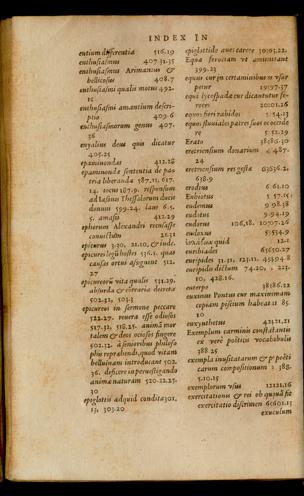 INDEX IN
entium differentia 516.19
enthusiasmus 407.31.35
enthusiasmus Arimantus &
bellicosus 408.7
enthusiasmi qualis motus 492.
15
enthusiasmi amantium descri-
ptio 409.6
enthusiasmorum genus 407.
36
enyalius deus quis dicatur
405.25
epaminondas 412.28
epaminondæ sententia de pa-
tria liberanda 587.11. 617.
14. socius 587.9. responsum
ad Iasonis Thessalorum ducis
donum 599.24. laus 6.5.
5. amasii 412.29
ephorum Alexandri recusasse
conuictum 21.31
epicurus 3.30. 21.10, & inde.
epicurus legū hostis 536.1. quas
causas ortus assignant 512.
27
epicureorū vita qualis 531.29.
absurda & cōtraria decreta
502.32, 503.3
epicureos in sermone peccare
522.27. reuera esse odiosos
517.32. 518.25. animā mor
talem & deos ociosos fingere
602.12. à senioribus philoso
phis reprehendi, quod vitam
belluinam introducant 502.
36. desicere in peruestigando
animæ naturam 520.22.25.
30
epiglottis ad quid condita 301.
13, 303.20
epiglottide aues carere 30303.22.
Equa ferociam vt amittant
399.23
equus cur in certaminibus
19197.37
equi lycospadæ cur dicantur
20201.26
fieri rabidos
fluuiales patres suos
Erato 38386.30
eretriensium donarium 4 487.
24
eretriensium res gestæ
618.9
erodius 6 61.10
Eubiotus 5 57.15
eudemus 9 98.38
euditus 9 94.19
eudorus 106,18. 10707.26
eudoxus 53534.9
12.1
eurybiades 65650.27
euripides 31.31, 123.11. 49494.8
euripidis dictum 74.20, 2 223.
10, 428.16.
euterpe 38386.22
euxinus Pontus cur maximam
copiam piscium habeat 85.
10
euxynthetus 42321.21
Exemplum carminis constantis
ex verè poëticis vocabulis
388 25
exempla inusitatarum & poëti
carum compositionum 2 388.
5.10.15
exemplorum vsus 12121.16
exercitationis & rei ob quā sit
exercitatio discrimen 60601.15
exuculum